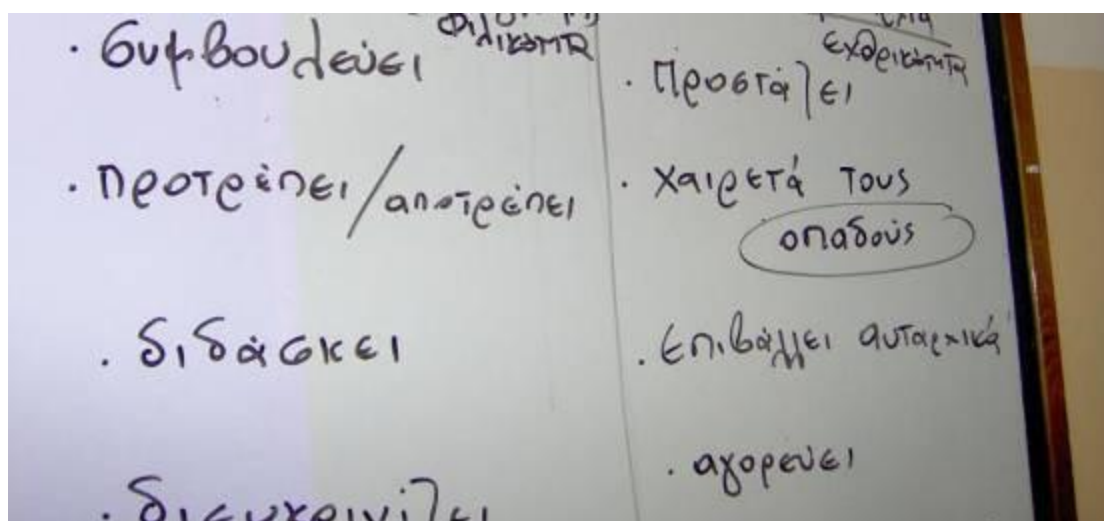 φιλικότητα
· συμβουλεύει
· προτρέπει/αποτρέπει
· διδάσκει
· διευκρινίζει
εχθρικότητα
· Προστάζει
· χαιρετά τους
οπαδούς
· Επιβάλλει αυταρχικά
· αγορεύει